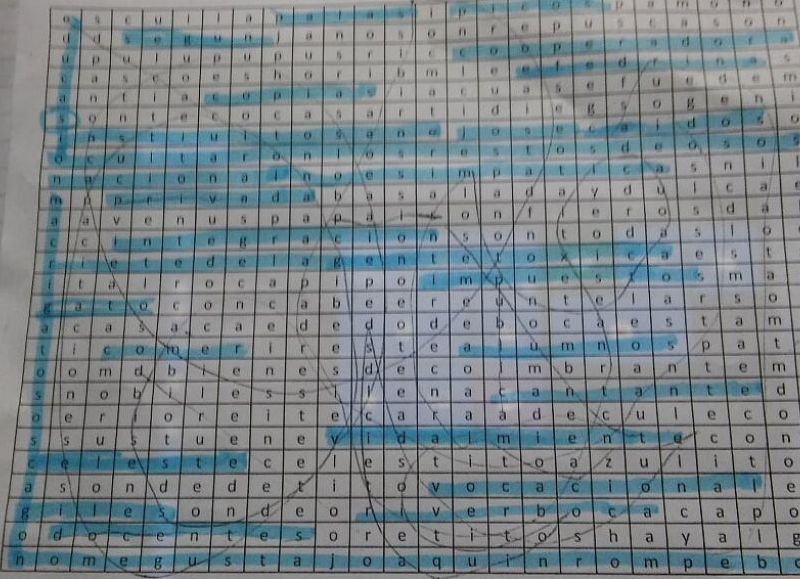 o s c u i l a p a l a s i p i c o s p a m o n o
d i s e g u n j a n o s o n r e p u s c a s o n
u p u l u p u p u s r i c c o o p e r a d o r a
t a s c o e s h o r i b m l e e f e d r i n a s
a n t i a c o p i a s i a c u a s e f u e d e m
s o n t e c o c a s a r t i d i e g s o g e n i
h s t i u i t o s a n d j o s e c a i d o s o
o c u l t a r o n l o s r e s t o s d e o s o s
n a c i o n a l n o e s i m p a t i c a s n i l
m p r i v e d a b a s a l a d a y d u l c a e
a a v e n u s p a p a i l o n t l e r o s d a
c c i n t e g r a c i o n s o n t o d a s l o
r i e t e d e l a g e n t e t o x i c a e s t
i t a l r o c a p i p o i m p u e s t o s m a
g a t o c o n c a b e e r e u n t e l a r s o
a c a s a c a e d e d o d e b o c a e s t a m
t i c o m e r i r e s t e a l u m n o s p a t
o o m d b i e n e s d e c o l m b r a n t e m
s n o b i l e s s i d e n a c a n t a n t e d
o e r i o r e i t e c a r a a d e c u l e c o
s s u s t u e n e v i d a l m i e n t e c o n
c e l e s t e c e l e s t i t o a z u l i t o
a s o n d e d e t i t o v o c a c i o n a l e
g i l e s o n d e o r i v e r b o c a c a p o
o d o c e n t e s o r e t i t o s h a y a l g
n o m e g u s t a j o a q u i n r o m p e b o